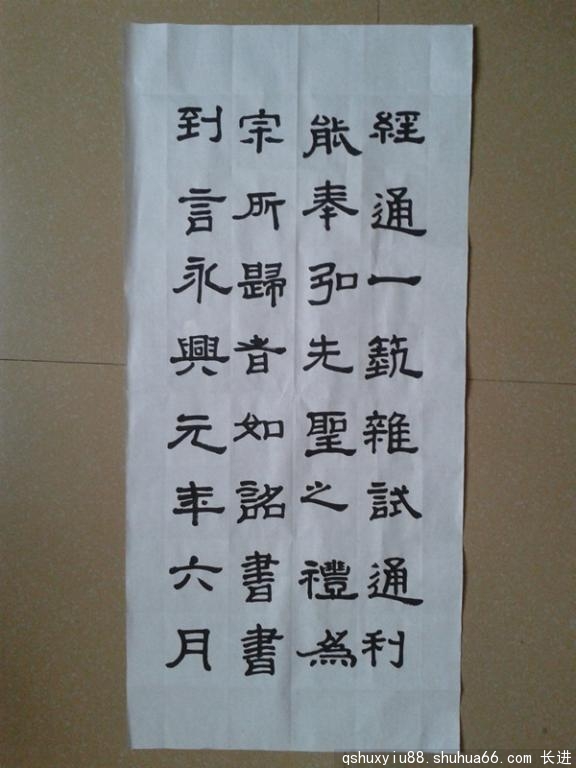 經通一藝雜試通利
能奉弘先聖之禮為
宗所歸者如詔書書
到言永興元年六月
qshuxyiu88.shuhua66.com 长进